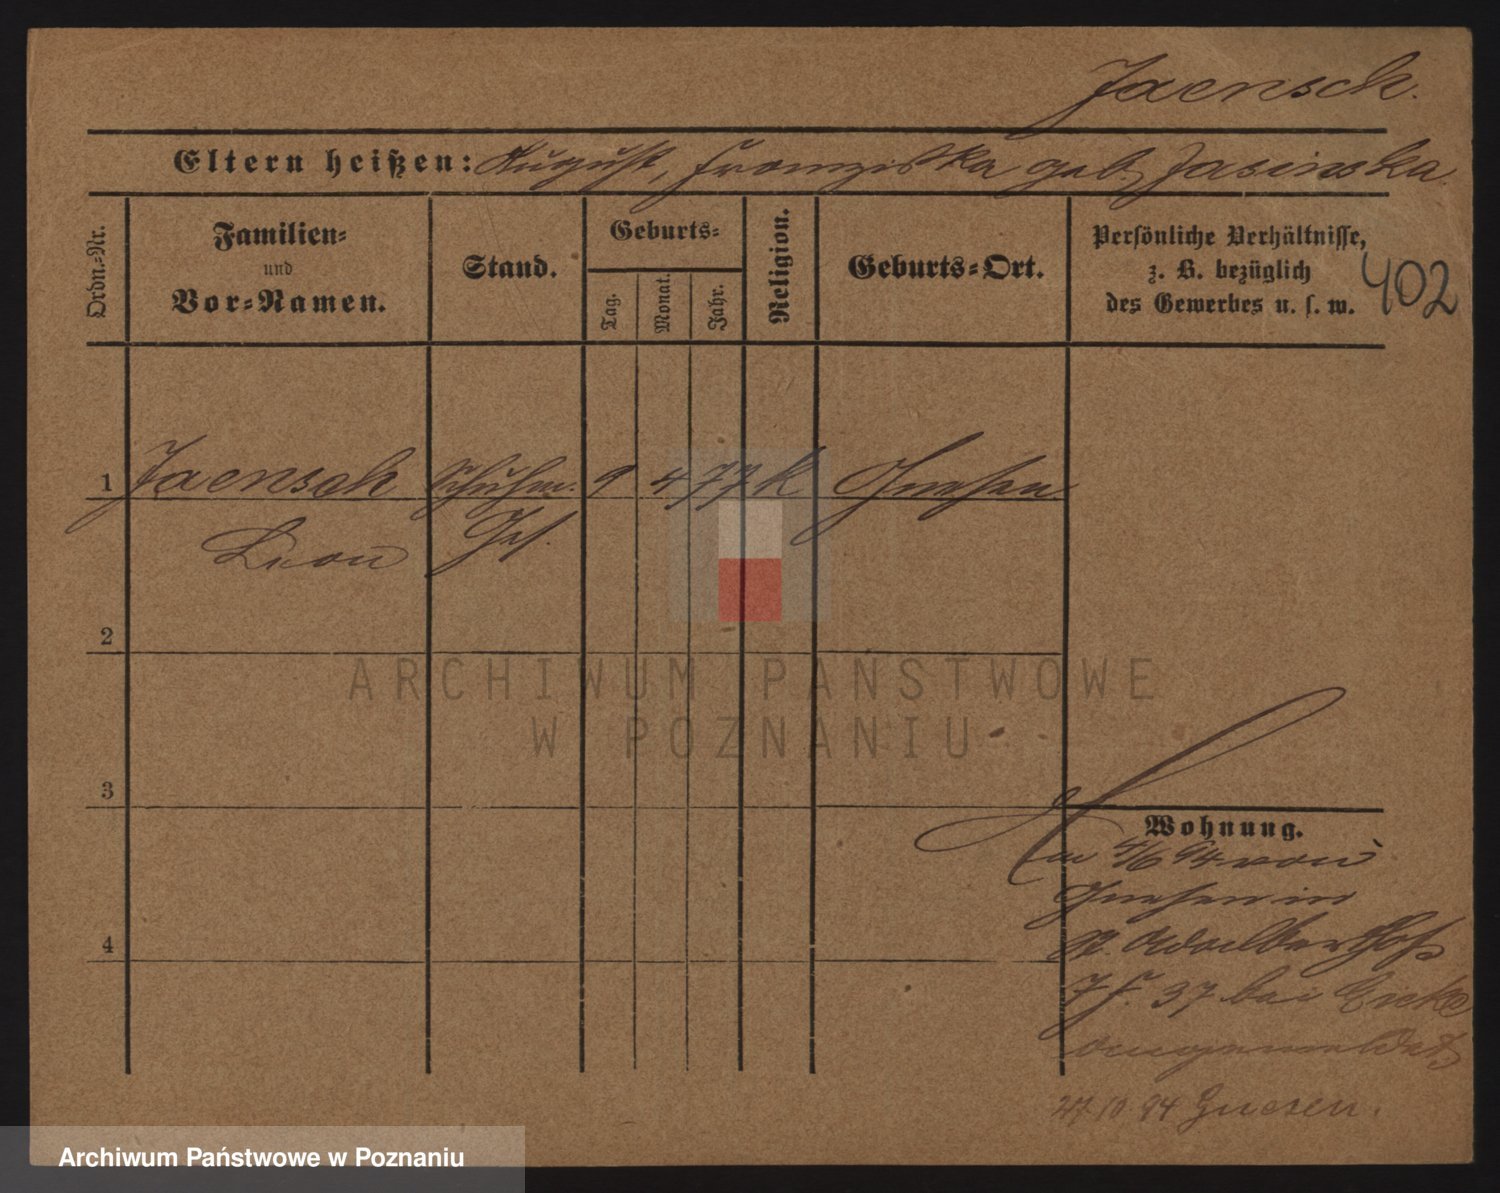 Jaensch.
Eltern heißen: August, Franziska geb. Jasinska.
Ordn.-Nr.
Familien-
und
Vor-Namen.
Stand.
Geburts-
Tag.
Monat.
Jahr.
Religion.
Geburts-Ort.
Persönliche Verhältnisse,
z. B. bezüglich
des Gewerbes u. s. w.
402
1 Jaensch Schuhm. 9 4 77 K Gnesen
Leon Ges.
2
ARCHIWUM PAŃSTWOWE
W POZNANIU
3
Wohnung.
am 4/6 94 von
Gnesen in
St. Adalbertstr
37 bei
angemeldet
27 10 94 Gnesen.
4
Archiwum Państwowe w Poznaniu